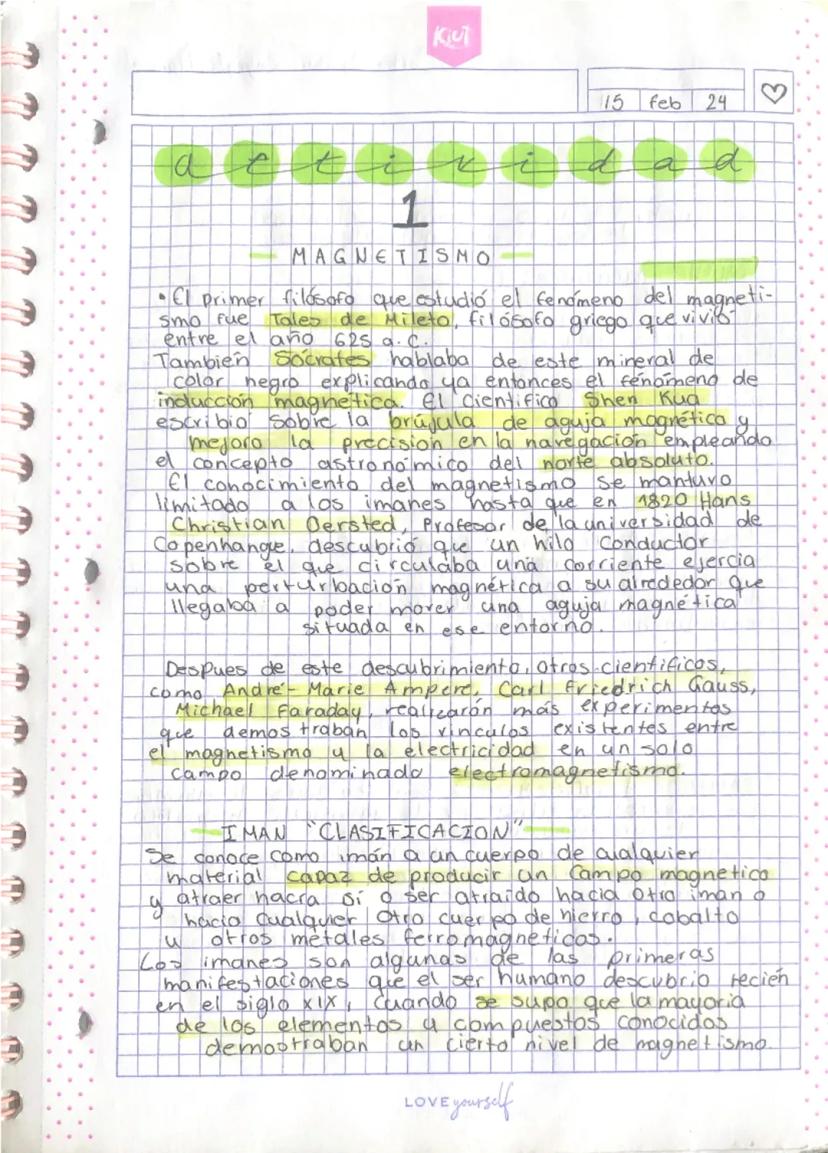 KiUT
15 feb 24
actividad
1
MAGNETISMO
• El primer filósofo que estudió el fenómeno del magneti-
smo fue Tales de Mileto, filósofo griego que vivió
entre el año 625 a.c.
También Sócrates hablaba de este mineral de
color negro explicando ya entonces el fenómeno de
inducción magnética. El científico Shen Kua
escribio sobre la brújula de aguja magnética y
mejoro la precisión en la navegación empleando
el concepto astronómico del norte absoluto.
El conocimiento del magnetismo se mantuvo
limitado a los imanes hasta que en 1820 Hans
Christian Oersted, Profesor de la universidad de
Copenhange, descubrió que un hilo conductor
sobre el que circulaba una corriente ejercia
una perturbación magnética a su alrededor que
llegaba a poder mover una aguja magnética
situada en ese entorno.
Despues de este descubrimiento, otros cientificos,
como André-Marie Ampere, Carl Friedrich Gauss,
Michael Faraday, realizarón más experimentos
que demostraban los vinculos existentes entre
el magnetismo y la electricidad en un solo
campo denominado electromagnetismo.
IMAN "CLASIFICACION"
Se conoce como imán a un cuerpo de cualquier
material capaz de producir un campo magnetico
y atraer hacia sí o ser atraido hacia otro iman o
hacia cualquier otro cuerpo de hierro, cobalto
u otros metales ferromagneticos.
Los imanes son algunas de las primeras
manifestaciones que el ser humano descubrio recién
en el siglo XIX, cuando se supo que la mayoria
de los elementos y compuestos conocidos
demostraban un cierto nivel de magnetismo.
LOVE yourself